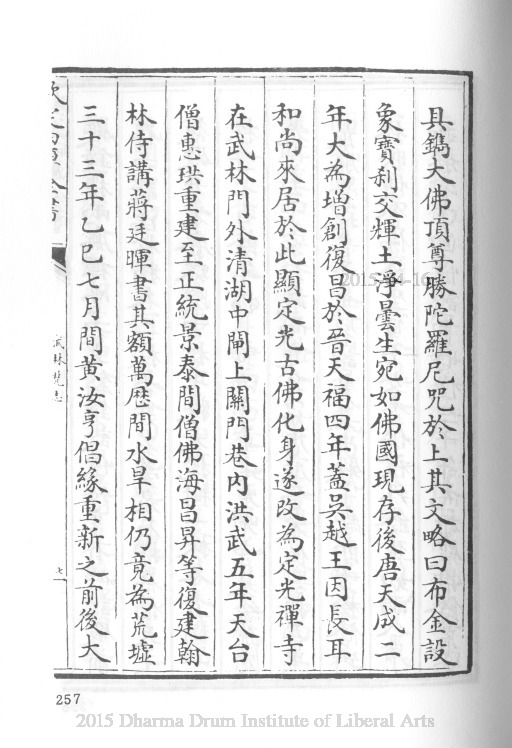 具鐫大佛頂尊勝陀羅尼咒於上其文略曰布金設
象寶刹交輝土淨曇生宛如佛國現存後唐天成二
年大為增創復昌於晉天福四年蓋吳越王因長耳
和尚來居於此顯定光古佛化身遂改為定光禪寺
在武林門外清湖中閘上關門巷內洪武五年天台
僧惠珙重建至正統景泰間僧佛海昌昇等復建翰
林侍講蔣廷暉書其額萬歷間水旱相仍竟為荒墟
三十三年乙巳七月間黃汝亨倡緣重新之前後大
武林梵志
七
257
2015 Dharma Drum Institute of Liberal Arts